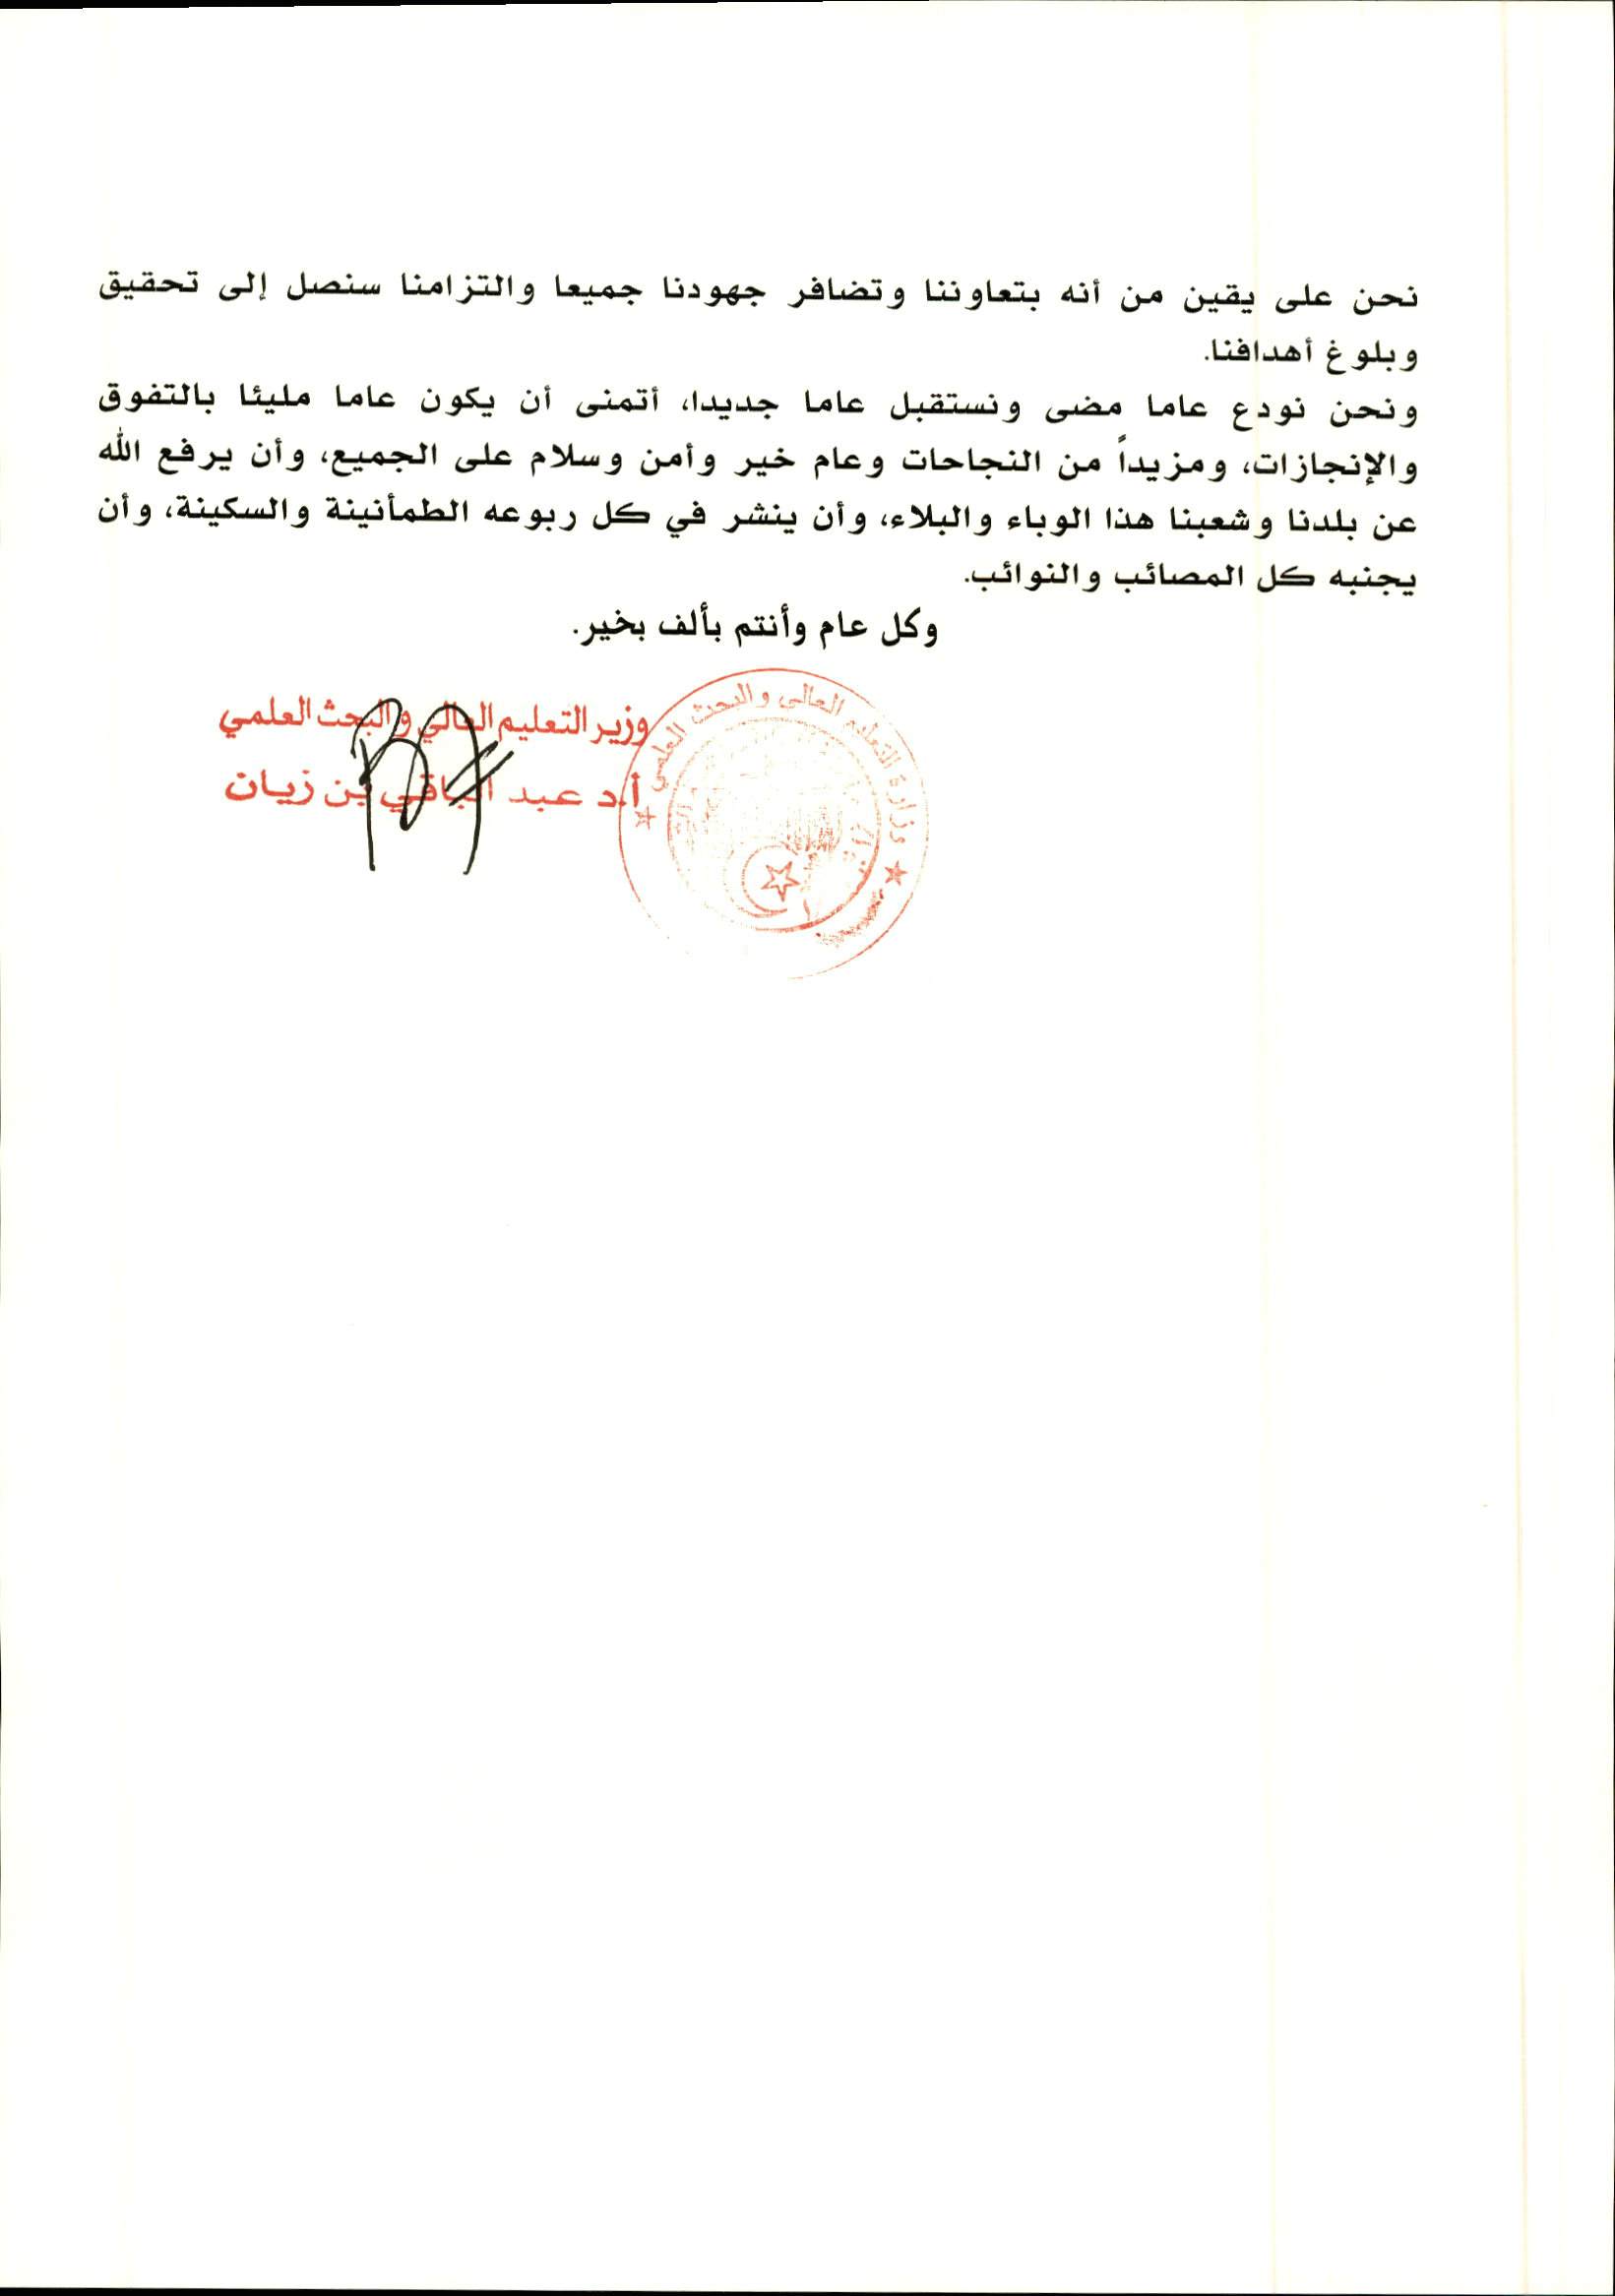 نحن على يقين من أنه بتعاوننا وتضافر جهودنا جميعا والتزامنا سنصل إلى تحقيق
وبلوغ أهدافنا.
ونحن نودع عاما مضى ونستقبل عاما جديدا، أتمنى أن يكون عاما مليئا بالتفوق
والإنجازات، ومزيداً من النجاحات وعام خير وأمن وسلام على الجميع، وأن يرفع الله
عن بلدنا وشعبنا هذا الوباء والبلاء، وأن ينشر في كل ربوعه الطمأنينة والسكينة، وأن
يجنبه كل المصائب والنوائب.
وكل عام وأنتم بألف بخير.
وزير التعليم العالي والبحث العلمي
أ.د عبد الباقي بن زيان
وزارة التعليم العالي والبحث العلمي